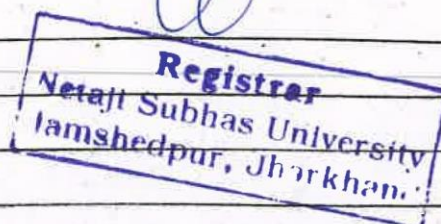 Registrar
Netaji Subhas University
Jamshedpur, Jharkhan.